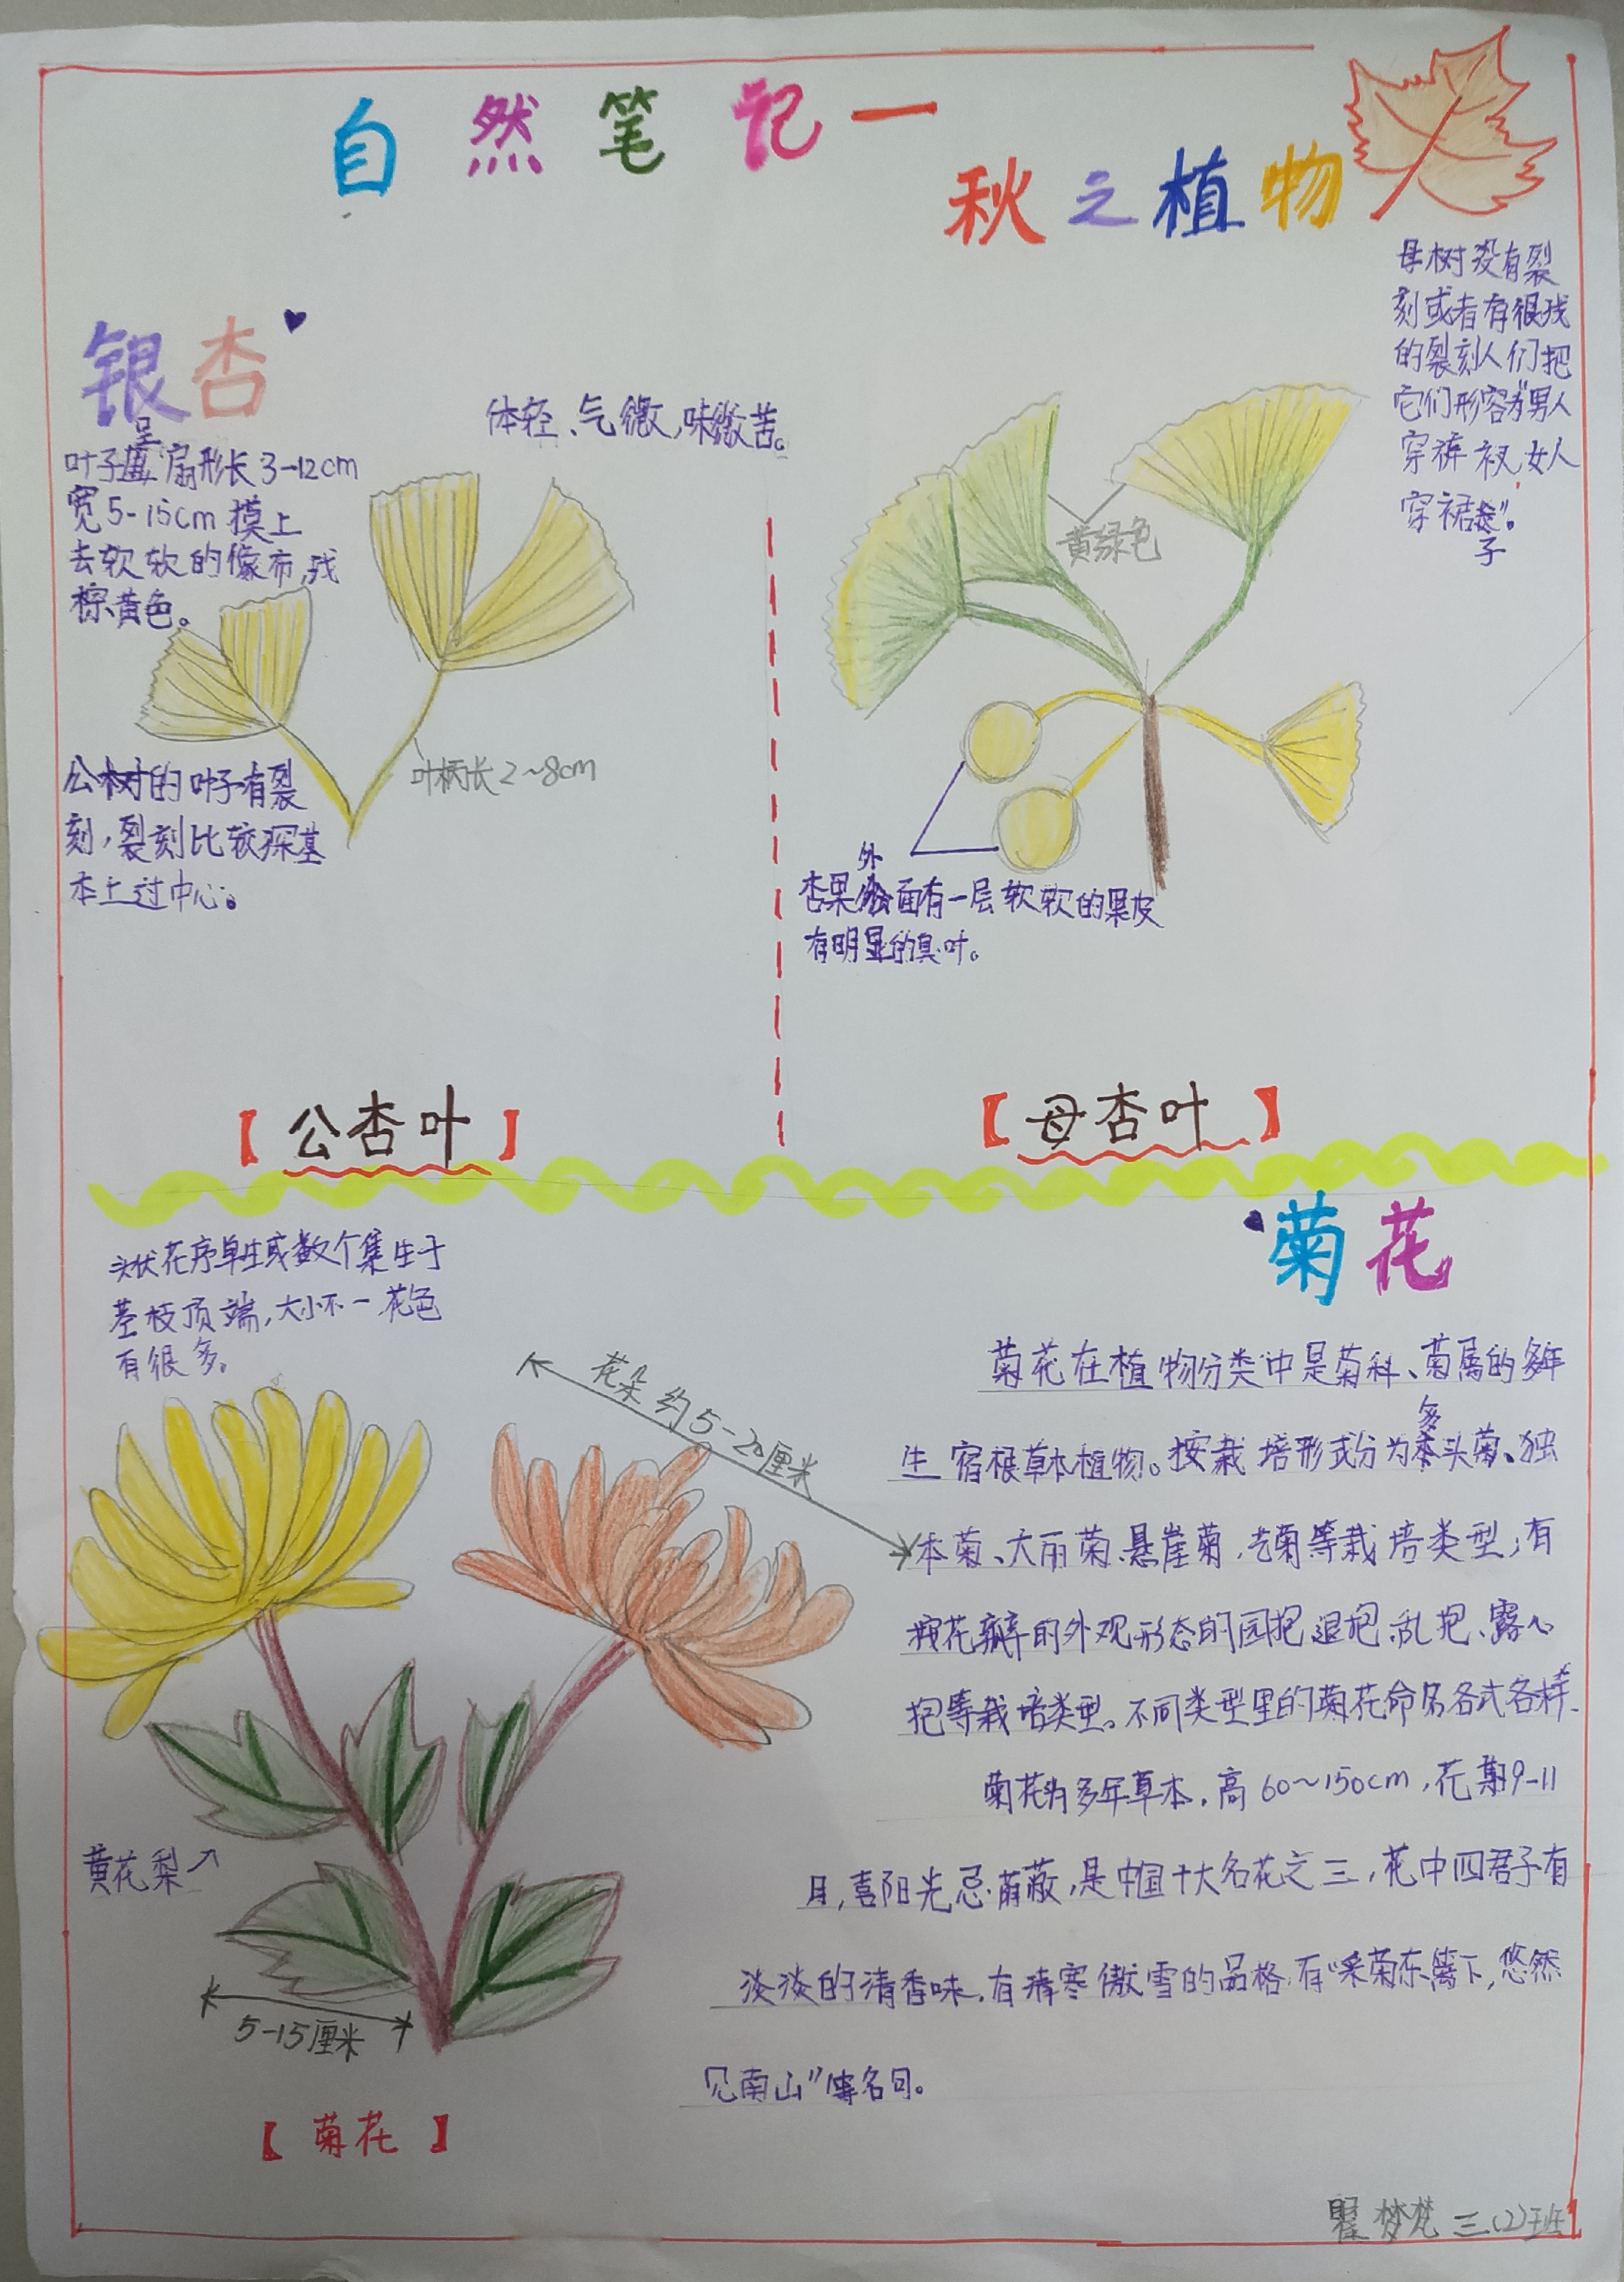 自然笔记一
秋之植物
银杏
呈
叶子 扇形长3-12cm
宽5-15cm摸上
去软软的像布,浅
棕黄色。
体轻、气微,味微苦。
公树的叶子有裂
刻,裂刻比较深基
本上过中心。
叶柄长2~8cm
【公杏叶】
母树没有裂
刻或者有很浅
的裂刻人们把
它们形容为"男人
穿裤衩,女人
穿裙 "。
子
黄绿色
外
杏果 面有一层软软的果皮
有明显的臭叶。
【母杏叶】
头状花序单生或数个集生于
茎枝顶端,大小不一花色
有很多。
花朵约5-20厘米
黄花梨
5-15厘米
【菊花】
菊花
菊花在植物分类中是菊科、菊属的多年
多
生宿根草本植物。按栽培形式分为 头菊、独
本菊、大丽菊、悬崖菊,艺菊等栽培类型;有
花瓣的外观形态的园抱,退抱,乱抱、露心
抱等栽培类型。不同类型里的菊花命名各式各样.
菊花为多年草本,高60~150cm,花期9-11
月,喜阳光忌荫蔽,是中国十大名花之三,花中四君子有
淡淡的清香味,有 寒傲雪的品格,有"采菊东篱下,悠然
见南山" 名句。
瞿梦梵 三(2)班